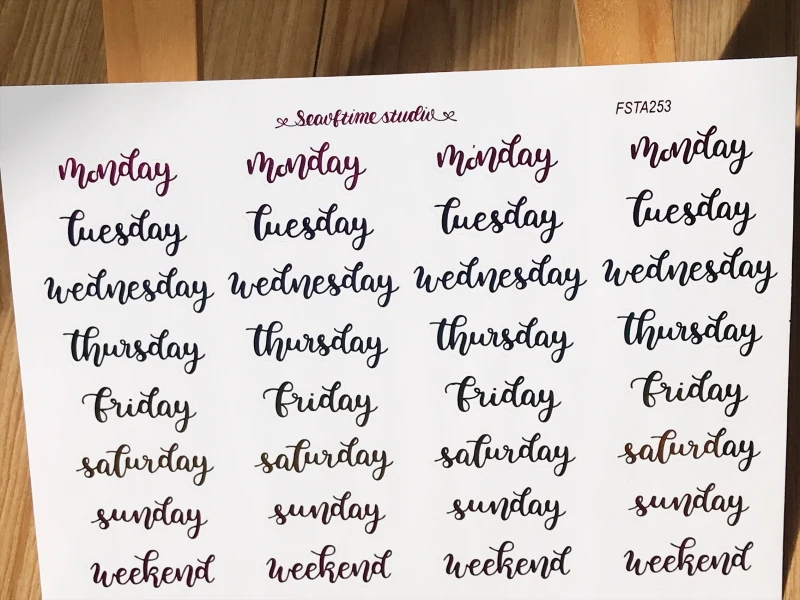 Seavftime studio
FSTA253
monday monday monday monday
tuesday tuesday tuesday tuesday
wednesday wednesday wednesday wednesday
thursday thursday thursday thursday
friday friday friday friday
saturday saturday saturday saturday
sunday sunday sunday sunday
weekend weekend weekend weekend